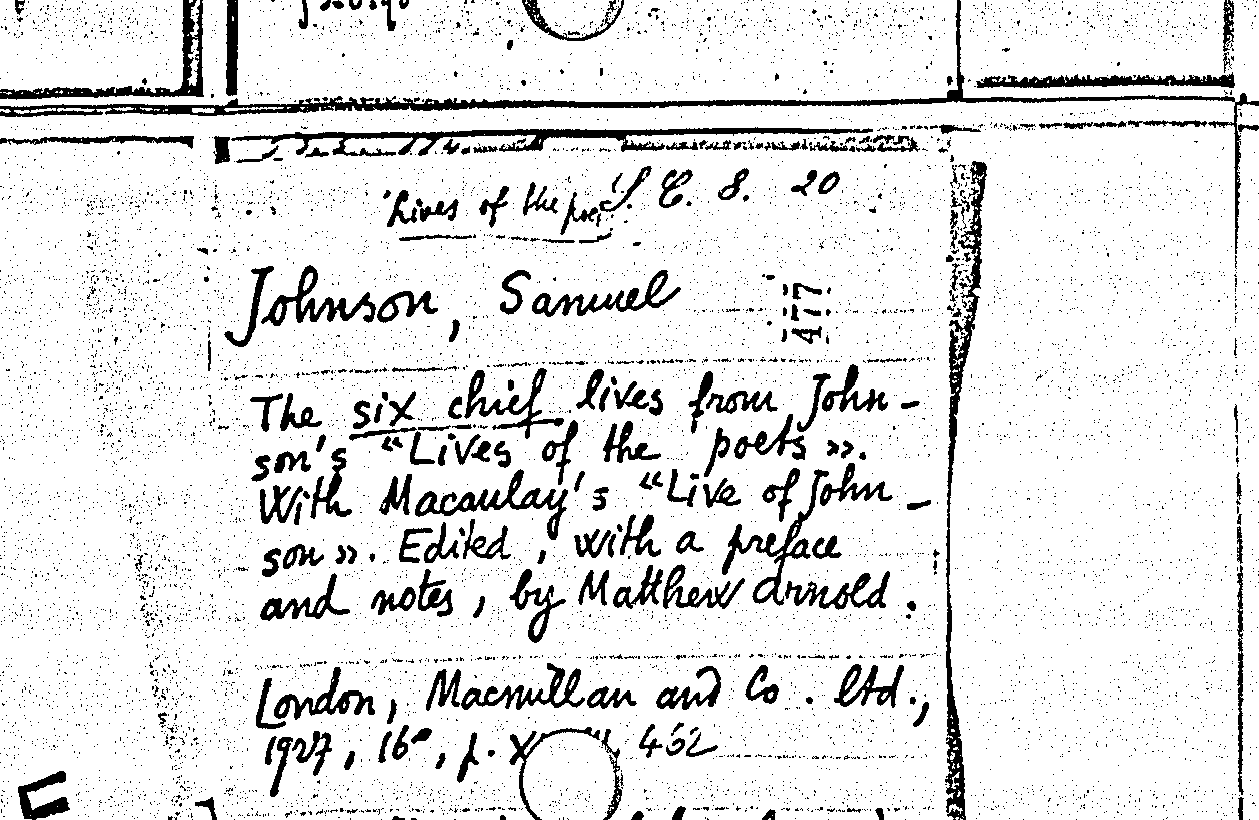 'Lives of the poet S. C. 8. 20
Johnson, Samuel
477
The six chief lives from John-
son's "Lives of the poets».
With Macaulay's "Live of John-
son». Edited, with a preface
and notes, by Matthew Arnold.
London, Macmillan and Co. ltd.,
1927, 16°, p. 452